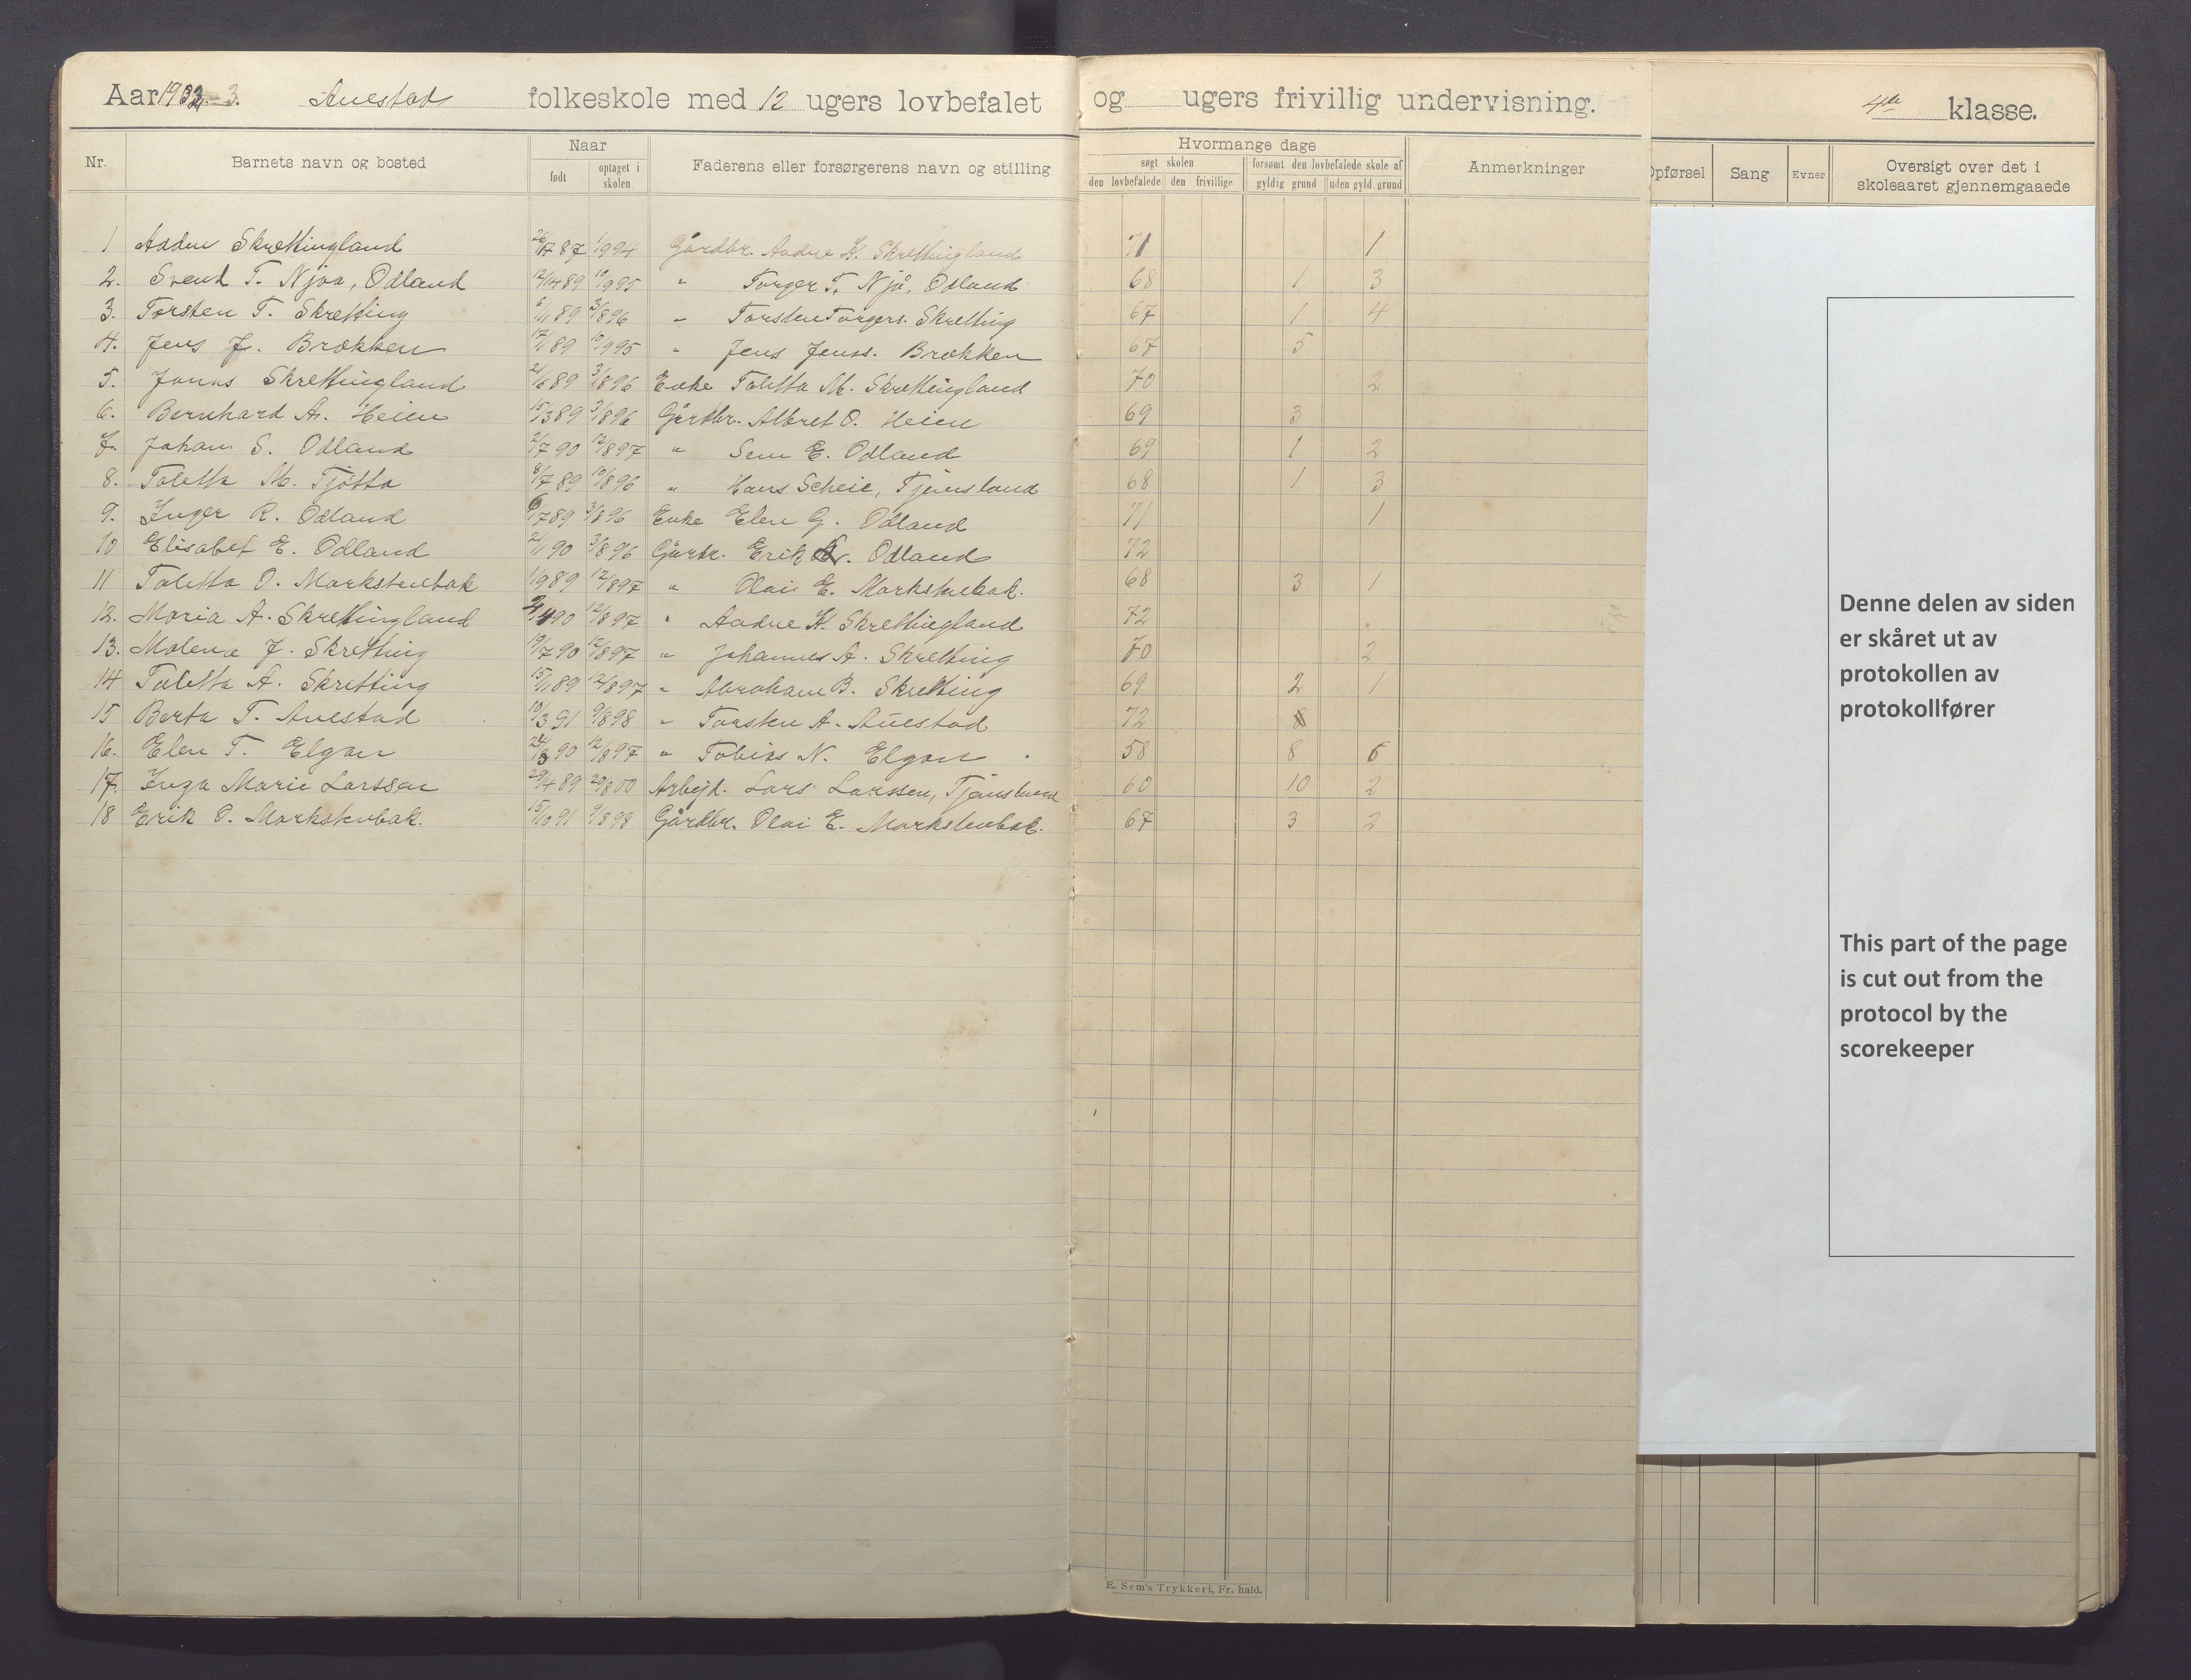 Aar 1902-3. Auestad folkeskole med 12 ugers lovbefalet og ugers frivillig undervisning. 4de klasse.
Nr. Barnets navn og bosted Naar født optaget i skolen Faderens eller forsørgerens navn og stilling Hvormange dage søgt skolen den lovbefalede den frivillige forsømt den lovbefalede skole af gyldig grund uden gyld. grund Anmerkninger Opførsel Sang Evner Oversigt over det i skoleaaret gjennemgaaede
1 Aadne Skrettingland 26/7 87 1/9 94 Gårdbr. Aadne K. Skrettingland 71 1
2. Svend T. Njaa, Odland 12/4 89 10/9 95 " Torger T. Njå, Odland 68 1 3
3. Torsten T. Skretting 6/11 89 3/8 96 " Torsten Torgers. Skretting 67 1 4
4. Jens J. Brækken 17/1 89 10/9 95 " Jens Jenss. Brækken 67 5
5. Jonas Skrettingland 21/6 89 3/8 96 Enke Taletta M. Skrettingland 70 2
6. Bernhard A. Heien 15/3 89 3/8 96 Gårdbr. Albret O. Heien 69 3
7. Johan S. Odland 2/7 90 12/8 97 " Sem E. Odland 69 1 2
8. Taletta M. Tjøtta 8/7 89 10/8 96 " Hans Scheie, Tjensland 68 1 3
9. Inger R. Odland 6/7 89 3/8 96 Enke Elen G. Odland 71 1
10 Elisabet E. Odland 21/1 90 3/8 96 Gårbr. Erik Odland 72
11 Taletta O. Markstenbak 1/9 89 12/8 97 " Olai E. Markstenbak. 68 3 1
12. Maria A. Skrettingland 90 12/8 97 " Aadne K. Skrettingland 72
13. Malena J. Skretting 19/7 90 12/8 97 " Johannes A. Skretting 70 2
14 Taletta A. Skretting 15/11 89 12/8 97 " Abraham B. Skretting 69 2 1
15 Berta T. Auestad 10/3 91 9/8 98 " Torsten A. Auestad 72
16. Elen T. Elgan 24/3 90 12/8 97 " Tobias N. Elgan 58 8 6
17. Inga Marie Larssen 29/4 89 20/8 00 Arbejd. Lars Larssen, Tjensland 60 10 2
18 Erik O. Markstenbak. 15/10 91 9/8 98 Gårdbr. Olai E. Markstenbak. 67 3 2
Denne delen av siden
er skåret ut av
protokollen av
protokollfører
This part of the page
is cut out from the
protocol by the
scorekeeper
E. Sem's Trykkeri, Fr. hald.